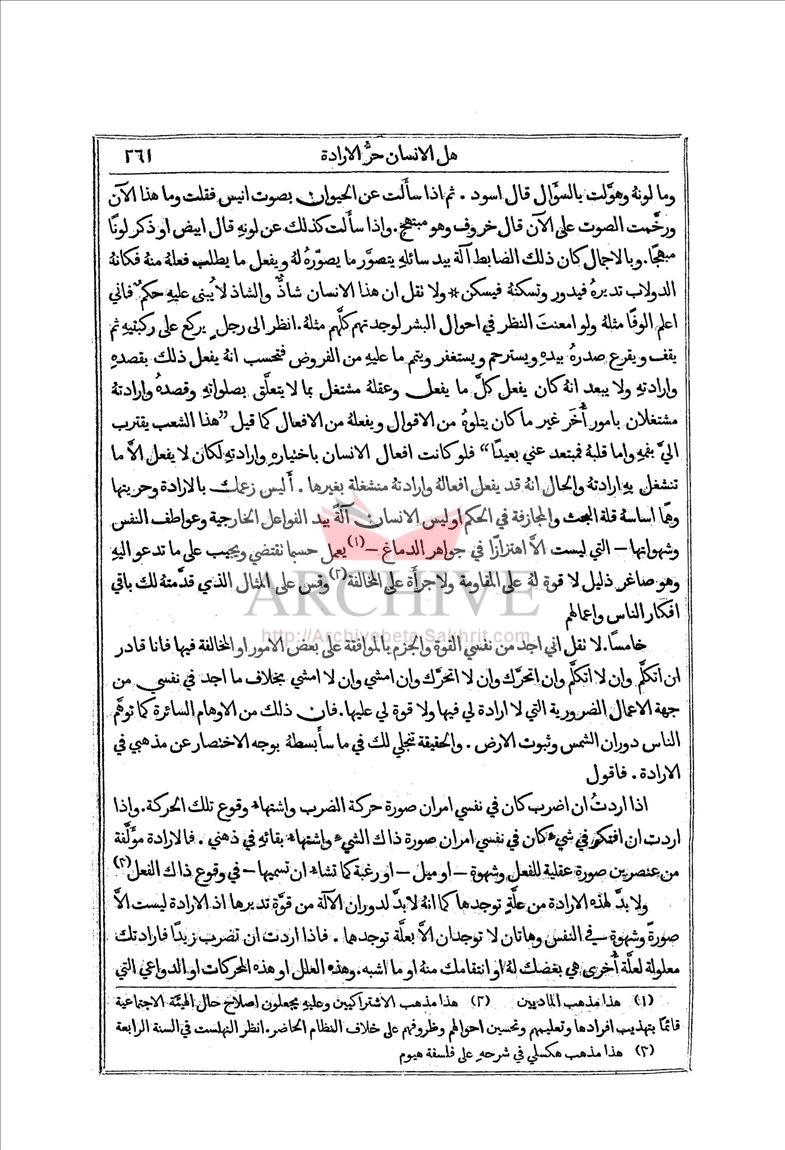 هل الانسان حرُّ الارادة
٢٦١
وما لونهُ وهوَّلت بالسؤَال قال اسود . ثم اذا سأَلت عن الحيوان بصوت انيس فقلت وما هذا الآن
ورخَّمت الصوت على الآن قال خروف وهو مبتهج. واذا سأَلت كذلك عن لونهِ قال ابيض او ذكر لونًا
مبهجًا. وبالاجمال كان ذلك الضابط آلة بيد سائلهِ يتصوَّر ما يصوّرهُ لهُ ويفعل ما يطلب فعلهُ منهُ فكانهُ
الدولاب تديرهُ فيدور وتسكنهُ فيسكن* ولا نقل ان هذا الانسان شاذٌّ والشاذ لا يُبنى عليهِ حكمٌ فاني
اعلم الوفًا مثلهُ ولو امعنتَ النظر في احوال البشر لوجدتهم كلَّهم مثلهُ. انظر الى رجلٍ يركع على ركبتيهِ ثم
يقف ويقرع صدرهُ بيدهِ ويسترحم ويستغفر ويتم ما عليهِ من الفروض فتحسب انهُ يفعل ذلك بقصدهِ
وارادتهِ ولا يبعد انهُ كان يفعل كلَّ ما يفعل وعقلهُ مشتغل بما لا يتعلَّق بصلواتهِ وقصدهُ وارادتهُ
مشتغلان بامورٍ أُخَر غير ما كان يتلوهُ من الاقوال ويفعلهُ من الافعال كما قيل ”هذا الشعب يقترب
اليَّ بفمهِ واما قلبهُ فمبتعد عني بعيدًا“ فلو كانت افعال الانسان باختيارهِ وارادتهِ لكان لا يفعل الاَّ ما
تنشغل بهِ ارادتهُ والحال انهُ قد يفعل افعالهُ وارادتهُ منشغلة بغيرها . أَليس زعمك بالارادة وحريتها
وهمًا اساسهُ قلة البحث والمجازفة في الحكم اوليس الانسان آلةً بيد الفواعل الخارجية وعواطف النفس
وشهواتها – التي ليست الاَّ اهتزازًا في جواهر الدماغ –(١) يعمل حسبما تقتضي ويجيب على ما تدعو اليهِ
وهو صاغر ذليل لا قوة لهُ على المقاومة ولا جرأَة على المخالفة(٢) وقس على المثال الذي قدَّمتهُ لك باقي
افكار الناس واعمالهم
خامسًا. لا نقل اني اجد من نفسي القوة والجزم بالموافقة على بعض الامور او المخالفة فيها فانا قادر
ان اتكلَّم وان لا اتكلَّم وان اتحرَّك وان لا اتحرَّك وان امشي وان لا امشي بخلاف ما اجد في نفسي من
جهة الاعمال الضرورية التي لا ارادة لي فيها ولا قوة لي عليها. فان ذلك من الاوهام السائرة كما توهَّم
الناس دوران الشمس وثبوت الارض . والحقيقة تتجلي لك في ما سأَبسطهُ بوجه الاختصار عن مذهبي في
الارادة . فاقول
اذا اردتُ ان اضرب كان في نفسي امران صورة حركة الضرب واشتهاء وقوع تلك الحركة. واذا
اردت ان افتكر في شيء كان في نفسي امران صورة ذاك الشيء واشتهاء بقائهِ في ذهني . فالارادة مؤَلَّفة
من عنصرين صورة عقلية للفعل وشهوة – او ميل – او رغبة كما تشاء ان تسميها – في وقوع ذاك الفعل(٣)
ولا بدَّ لهذه الارادة من علَّةٍ توجدها كما انهُ لا بدَّ لدوران الآلة من قوَّة تديرها اذ الارادة ليست الاَّ
صورةً وشهوةٍ في النفس وهاتان لا توجدان الاَّ بعلَّة توجدها . فاذا اردت ان تضرب زيدًا فارادتك
معلولة لعلَّة أُخرى هي بغضك لهُ او انتقامك منهُ او ما اشبه. وهذه العلل او هذه المحركات او الدواعي التي
(١) هذا مذهب الماديين (٢) هذا مذهب الاشتراكيين وعليهِ يجعلون اصلاح حال الهيئة الاجتماعية
قائمًا بتهذيب افرادها وتعليمهم وتحسين احوالهم وظروفهم على خلاف النظام الحاضر. انظر النهلست في السنة الرابعة
(٣) هذا مذهب هكسلي في شرحهِ على فلسفة هيوم
ARCHIVE
http://Archivebeta.Sakhrit.com